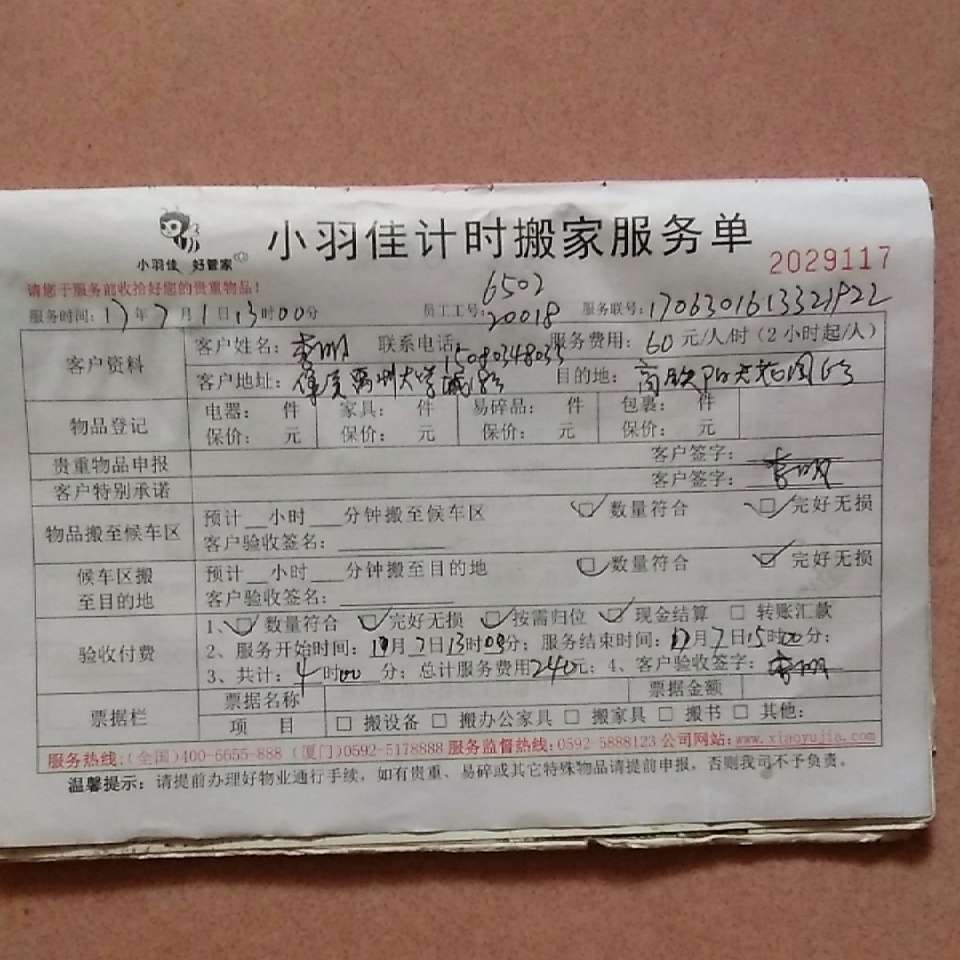 小羽佳 好管家
小羽佳计时搬家服务单
2029117
请您于服务前收拾好您的贵重物品!
服务时间: 17年7月1日13时00分 员工工号: 6502 20018 服务联号: 1706301613321922
客户资料
客户姓名: 李明 联系电话: 15080348033 服务费用: 60元/人/时(2小时起/人)
客户地址: 禹洲大学城 目的地:
物品登记
电器: 件 家具: 件 易碎品: 件 包裹: 件
保价: 元 保价: 元 保价: 元 保价: 元
贵重物品申报 客户签字:
客户特别承诺 客户签字: 李明
物品搬至候车区
预计__小时___分钟搬至候车区 ☑数量符合 ☑完好无损
客户验收签名:
候车区搬至目的地
预计__小时___分钟搬至目的地 ☑数量符合 ☑完好无损
客户验收签名:
验收付费
1、☑数量符合 ☑完好无损 ☑按需归位 ☑现金结算 □转账汇款
2、服务开始时间: 月 日13时00分; 服务结束时间: 月 日15时00分;
3、共计: 4时00分; 总计服务费用240元; 4、客户验收签字: 李明
票据栏
票据名称 票据金额
项 目 □搬设备 □搬办公家具 □搬家具 □搬书 □其他:
服务热线:(全国)400-6655-888 (厦门)0592-5178888 服务监督热线:0592-5888123 公司网站:www.xiaoyujia.com
温馨提示: 请提前办理好物业通行手续, 如有贵重、易碎或其它特殊物品请提前申报, 否则我司不予负责。